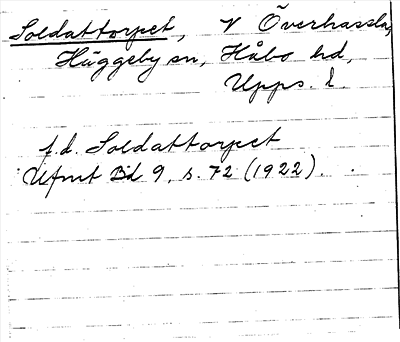 Soldattorpet, V Överhassla,
Häggeby sn, Håbo hd,
Upps. l.
f.d. Soldattorpet
Utmt Bd 9, s. 72 (1922).